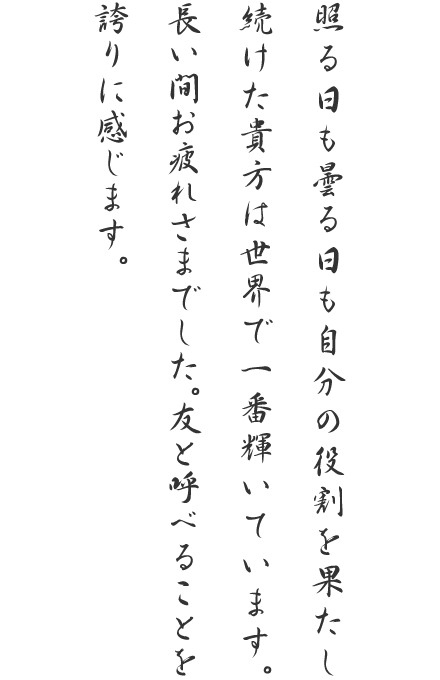 照る日も曇る日も自分の役割を果たし
続けた貴方は世界で一番輝いています。
長い間お疲れさまでした。友と呼べることを
誇りに感じます。